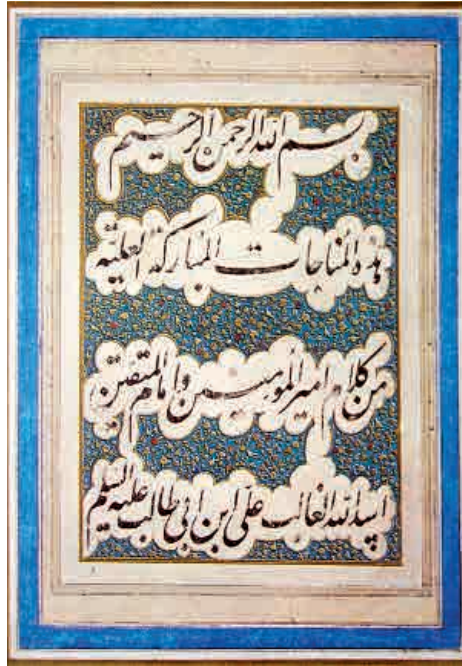 بسم الله الرحمن الرحیم
هذه المناجات المبارکة العلیة
من کلام امیر المؤمنین و امام المتقین
اسد الله الغالب علی ابن ابی طالب علیه السلم